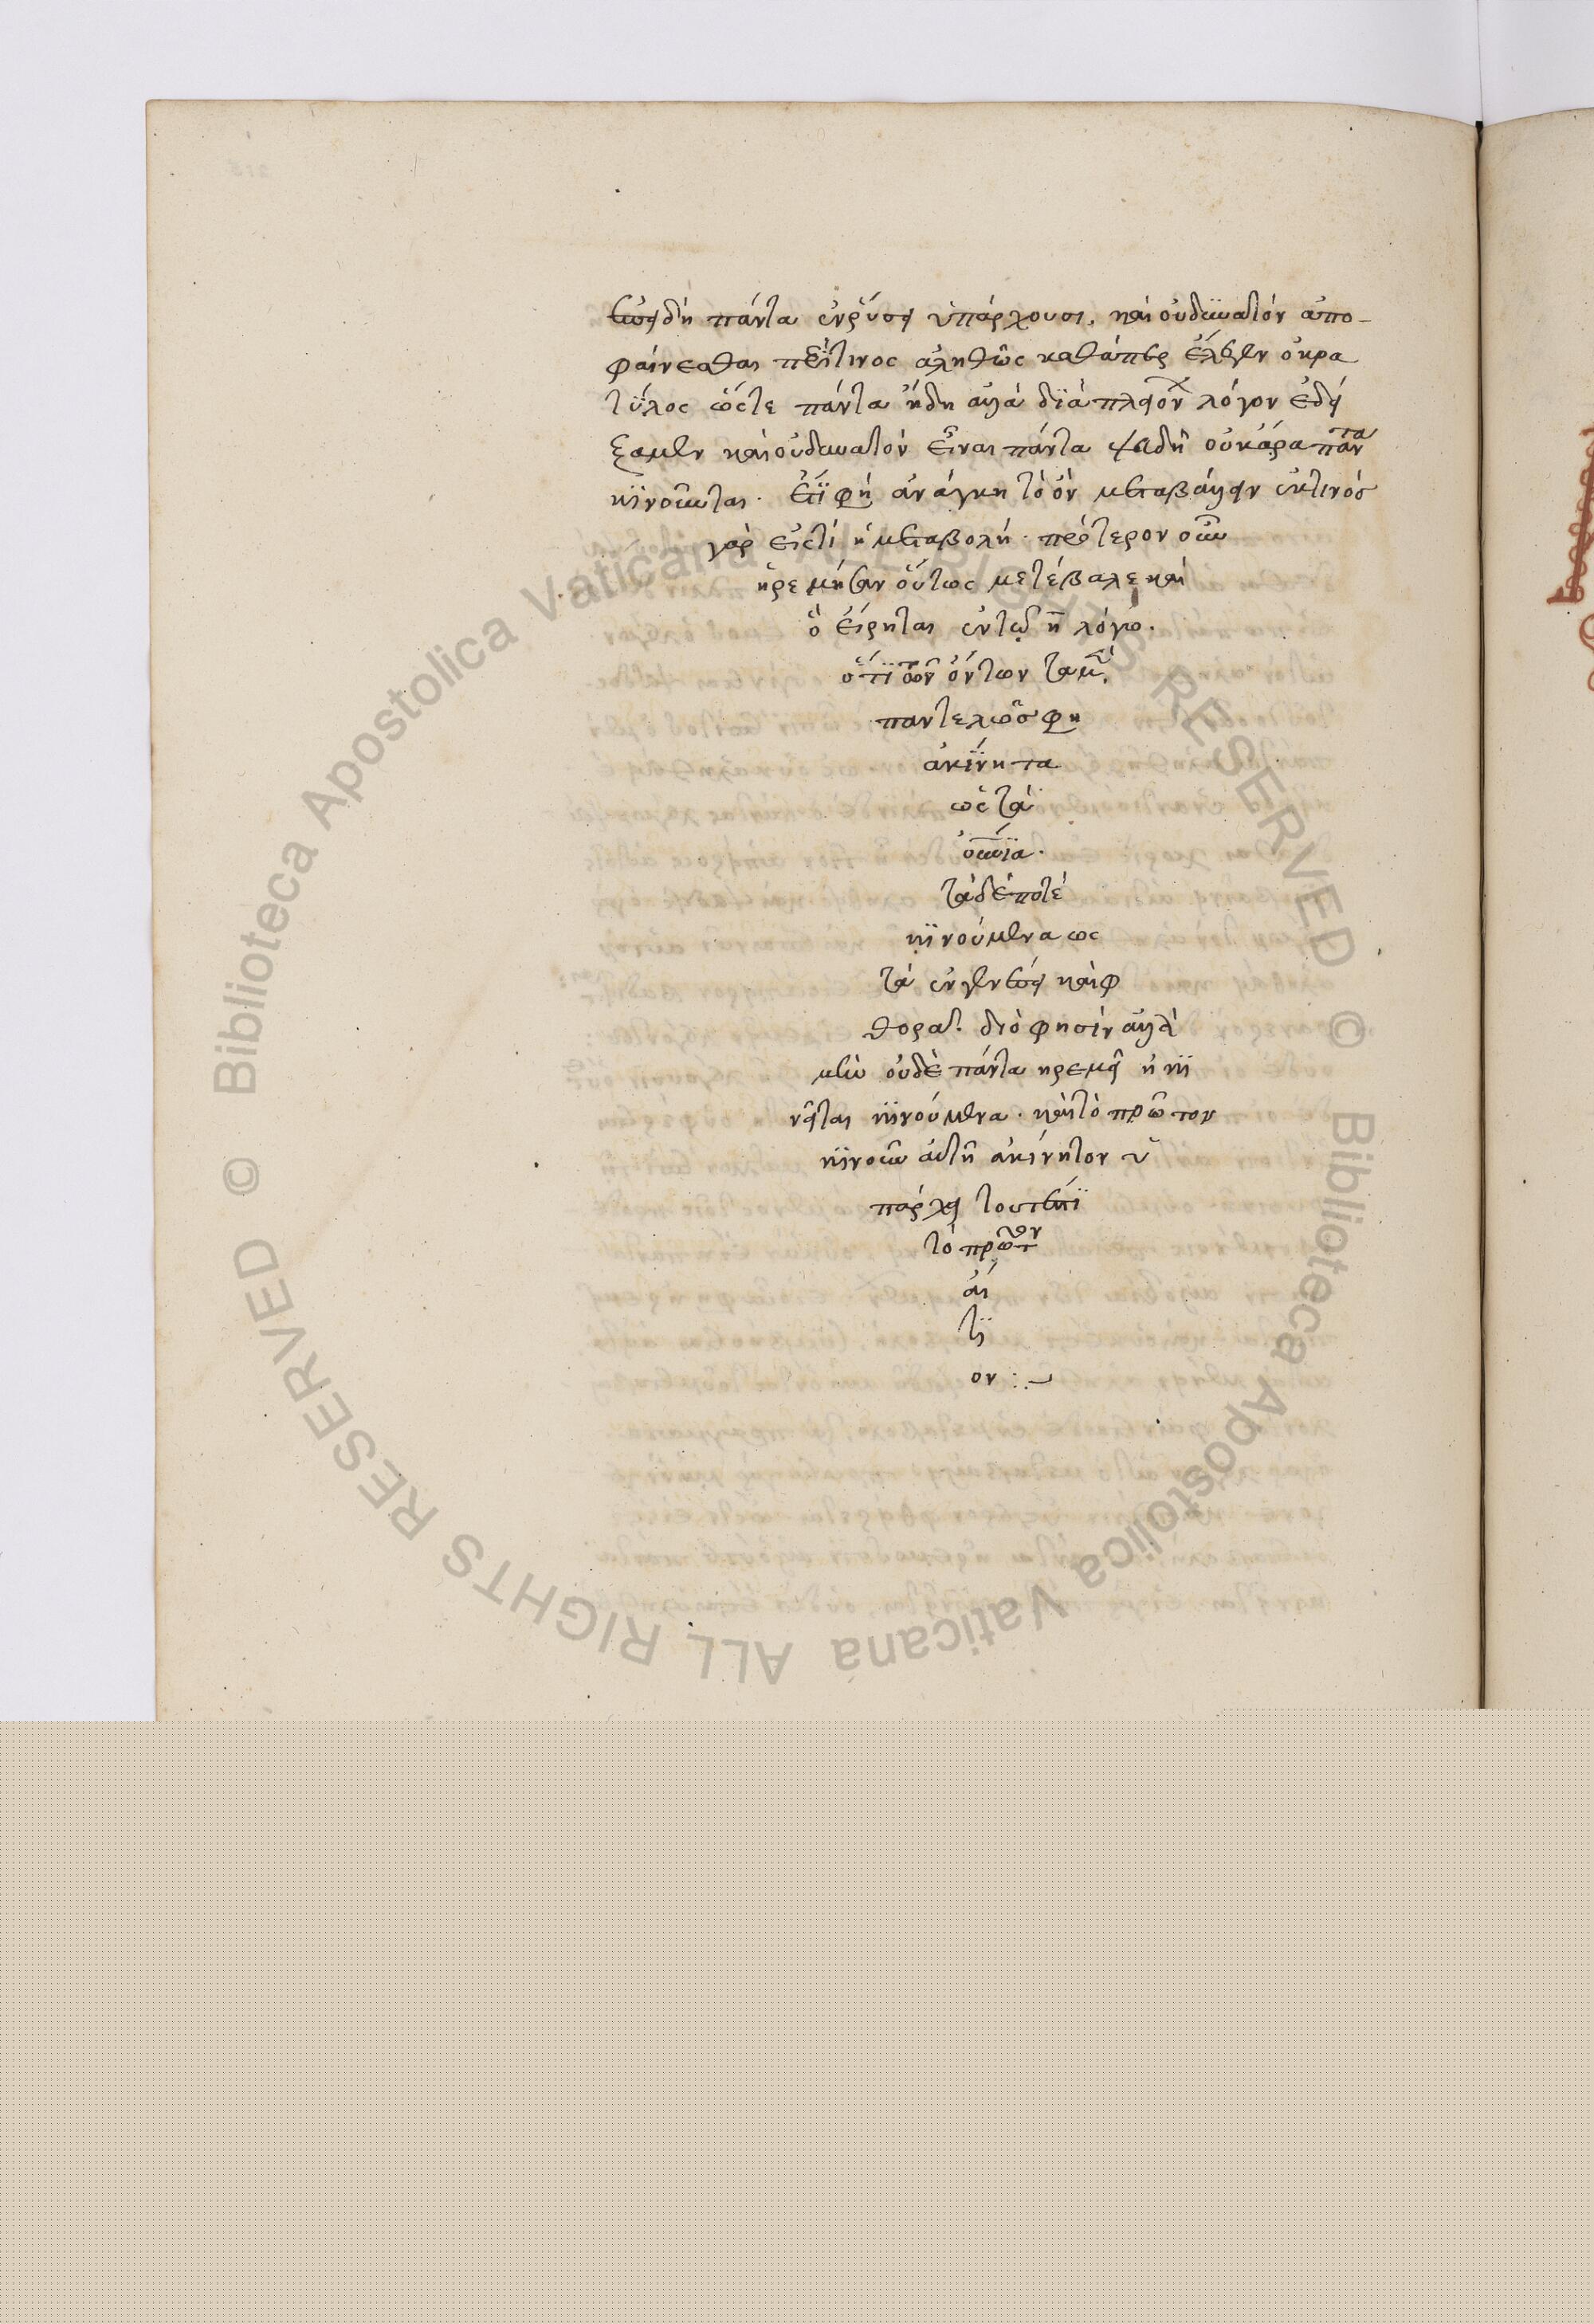 ἐπειδὴ πάντα ἐν ῥύσει ὑπάρχουσι, καὶ οὐ δυνατὸν ἀπο-
φαίνεσθαι περί τινος ἀληθῶς καθάπερ ἔλεγεν ὁ κρα
τύλος ὥστε πάντα ψευδῆ ἀλλὰ διὰ πλειόνων λόγον ἐδεί
ξαμεν καὶ οὐ δυνατὸν εἶναι πάντα ψευδῆ οὐκ ἄρα πάντα
κινοῦνται. ἔτι φη ἀνάγκη τὸ ὂν μεταβάλλειν ἔκ τινός
γὰρ εἴς τι ἡ μεταβολή. πρότερον οὖν
ἠρεμῆσαν οὕτως μετέβαλε καὶ
ὃ εἴρηται ἐν τῷ η λόγῳ.
ὅτι τῶν ὄντων τὰ μὲν
παντελῶς φη
ἀκίνητα
ὡς τὰ
οὐράνια.
τὰ δέ ποτέ
κινούμενα ως
τὰ ἐν γενέσει καὶ φ
θορᾷ. διό φησιν ἀλλὰ
μὴν οὐδὲ πάντα ἠρεμεῖ ἢ κι
νεῖται κινούμενα. καὶ τὸ πρῶτον
κινοῦν αὐτὴ ἀκίνητον ὑ
πάρχει τουτέστι
τὸ πρῶτον
αἴ
τι
ον :